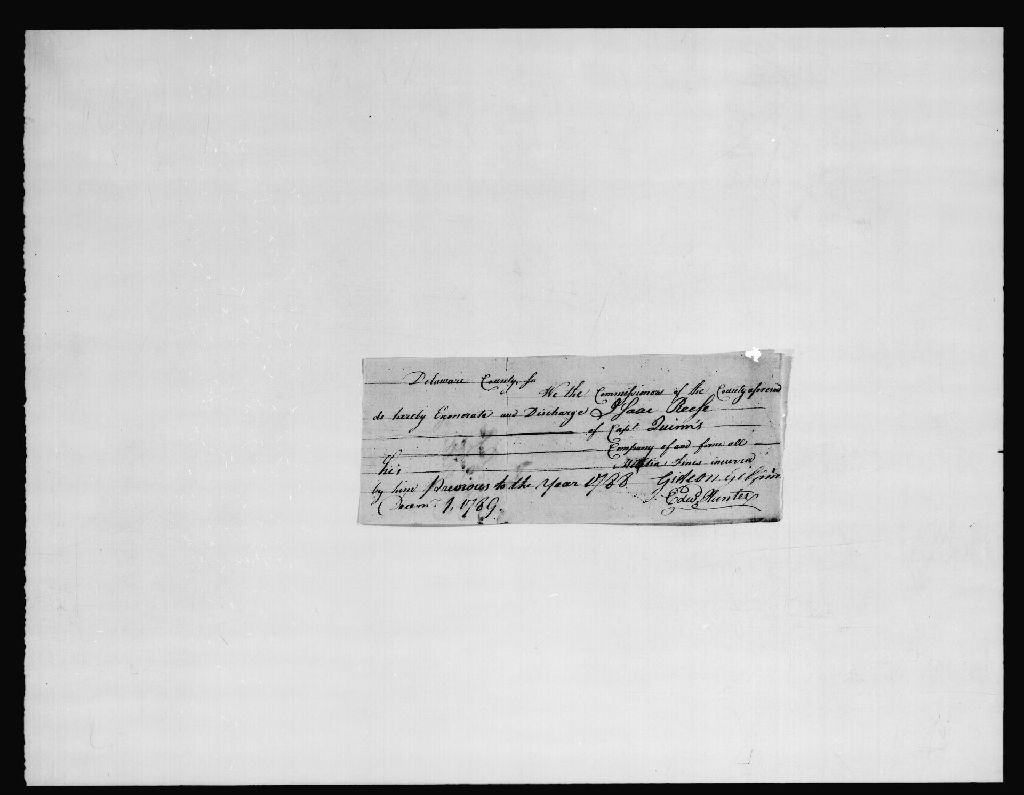 Delaware County, ss
We the Commissioners of the County aforesaid
do hereby Exonerate and Discharge Isaac Reese
of Capt. Quinn's
Company of and from all
his Militia Fines incurred
by him Previous to the Year 1788 Gideon Gilpin
Edwd. Hunter
Decemr. 1, 1789.